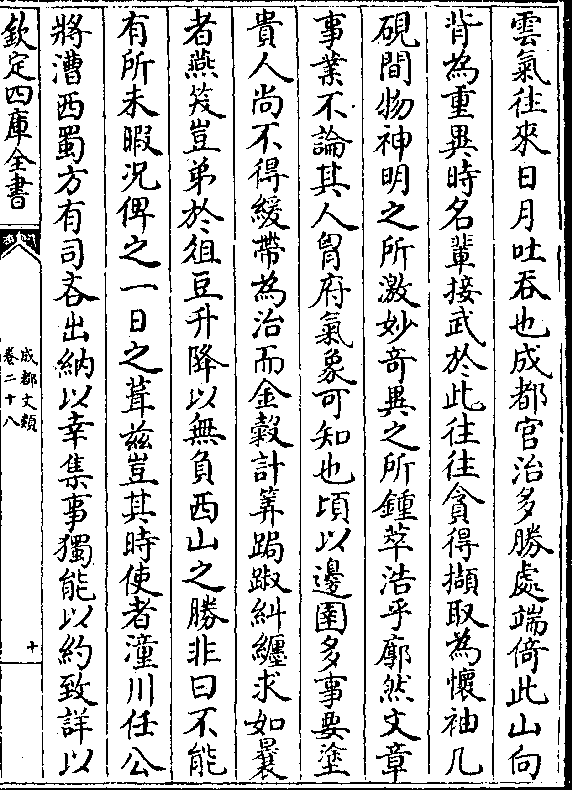 雲氣往來日月吐吞也成都官治多勝處端倚此山向
背為重異時名輩接武於此往往貪得擷取為懷袖几
硯間物神明之所激妙奇異之所鍾萃浩乎廓然文章
事業不論其人胷府氣象可知也頃以邊圉多事要塗
貴人尚不得緩帶為治而金穀計筭跼踧糾纏求如曩
者燕笑豈弟於俎豆升降以無負西山之勝非曰不能
有所未暇況俾之一日之葺兹豈其時使者潼川任公
將漕西蜀方有司吝出納以幸集事獨能以約致詳以
欽定四庫全書
成都文類
卷二十八
十